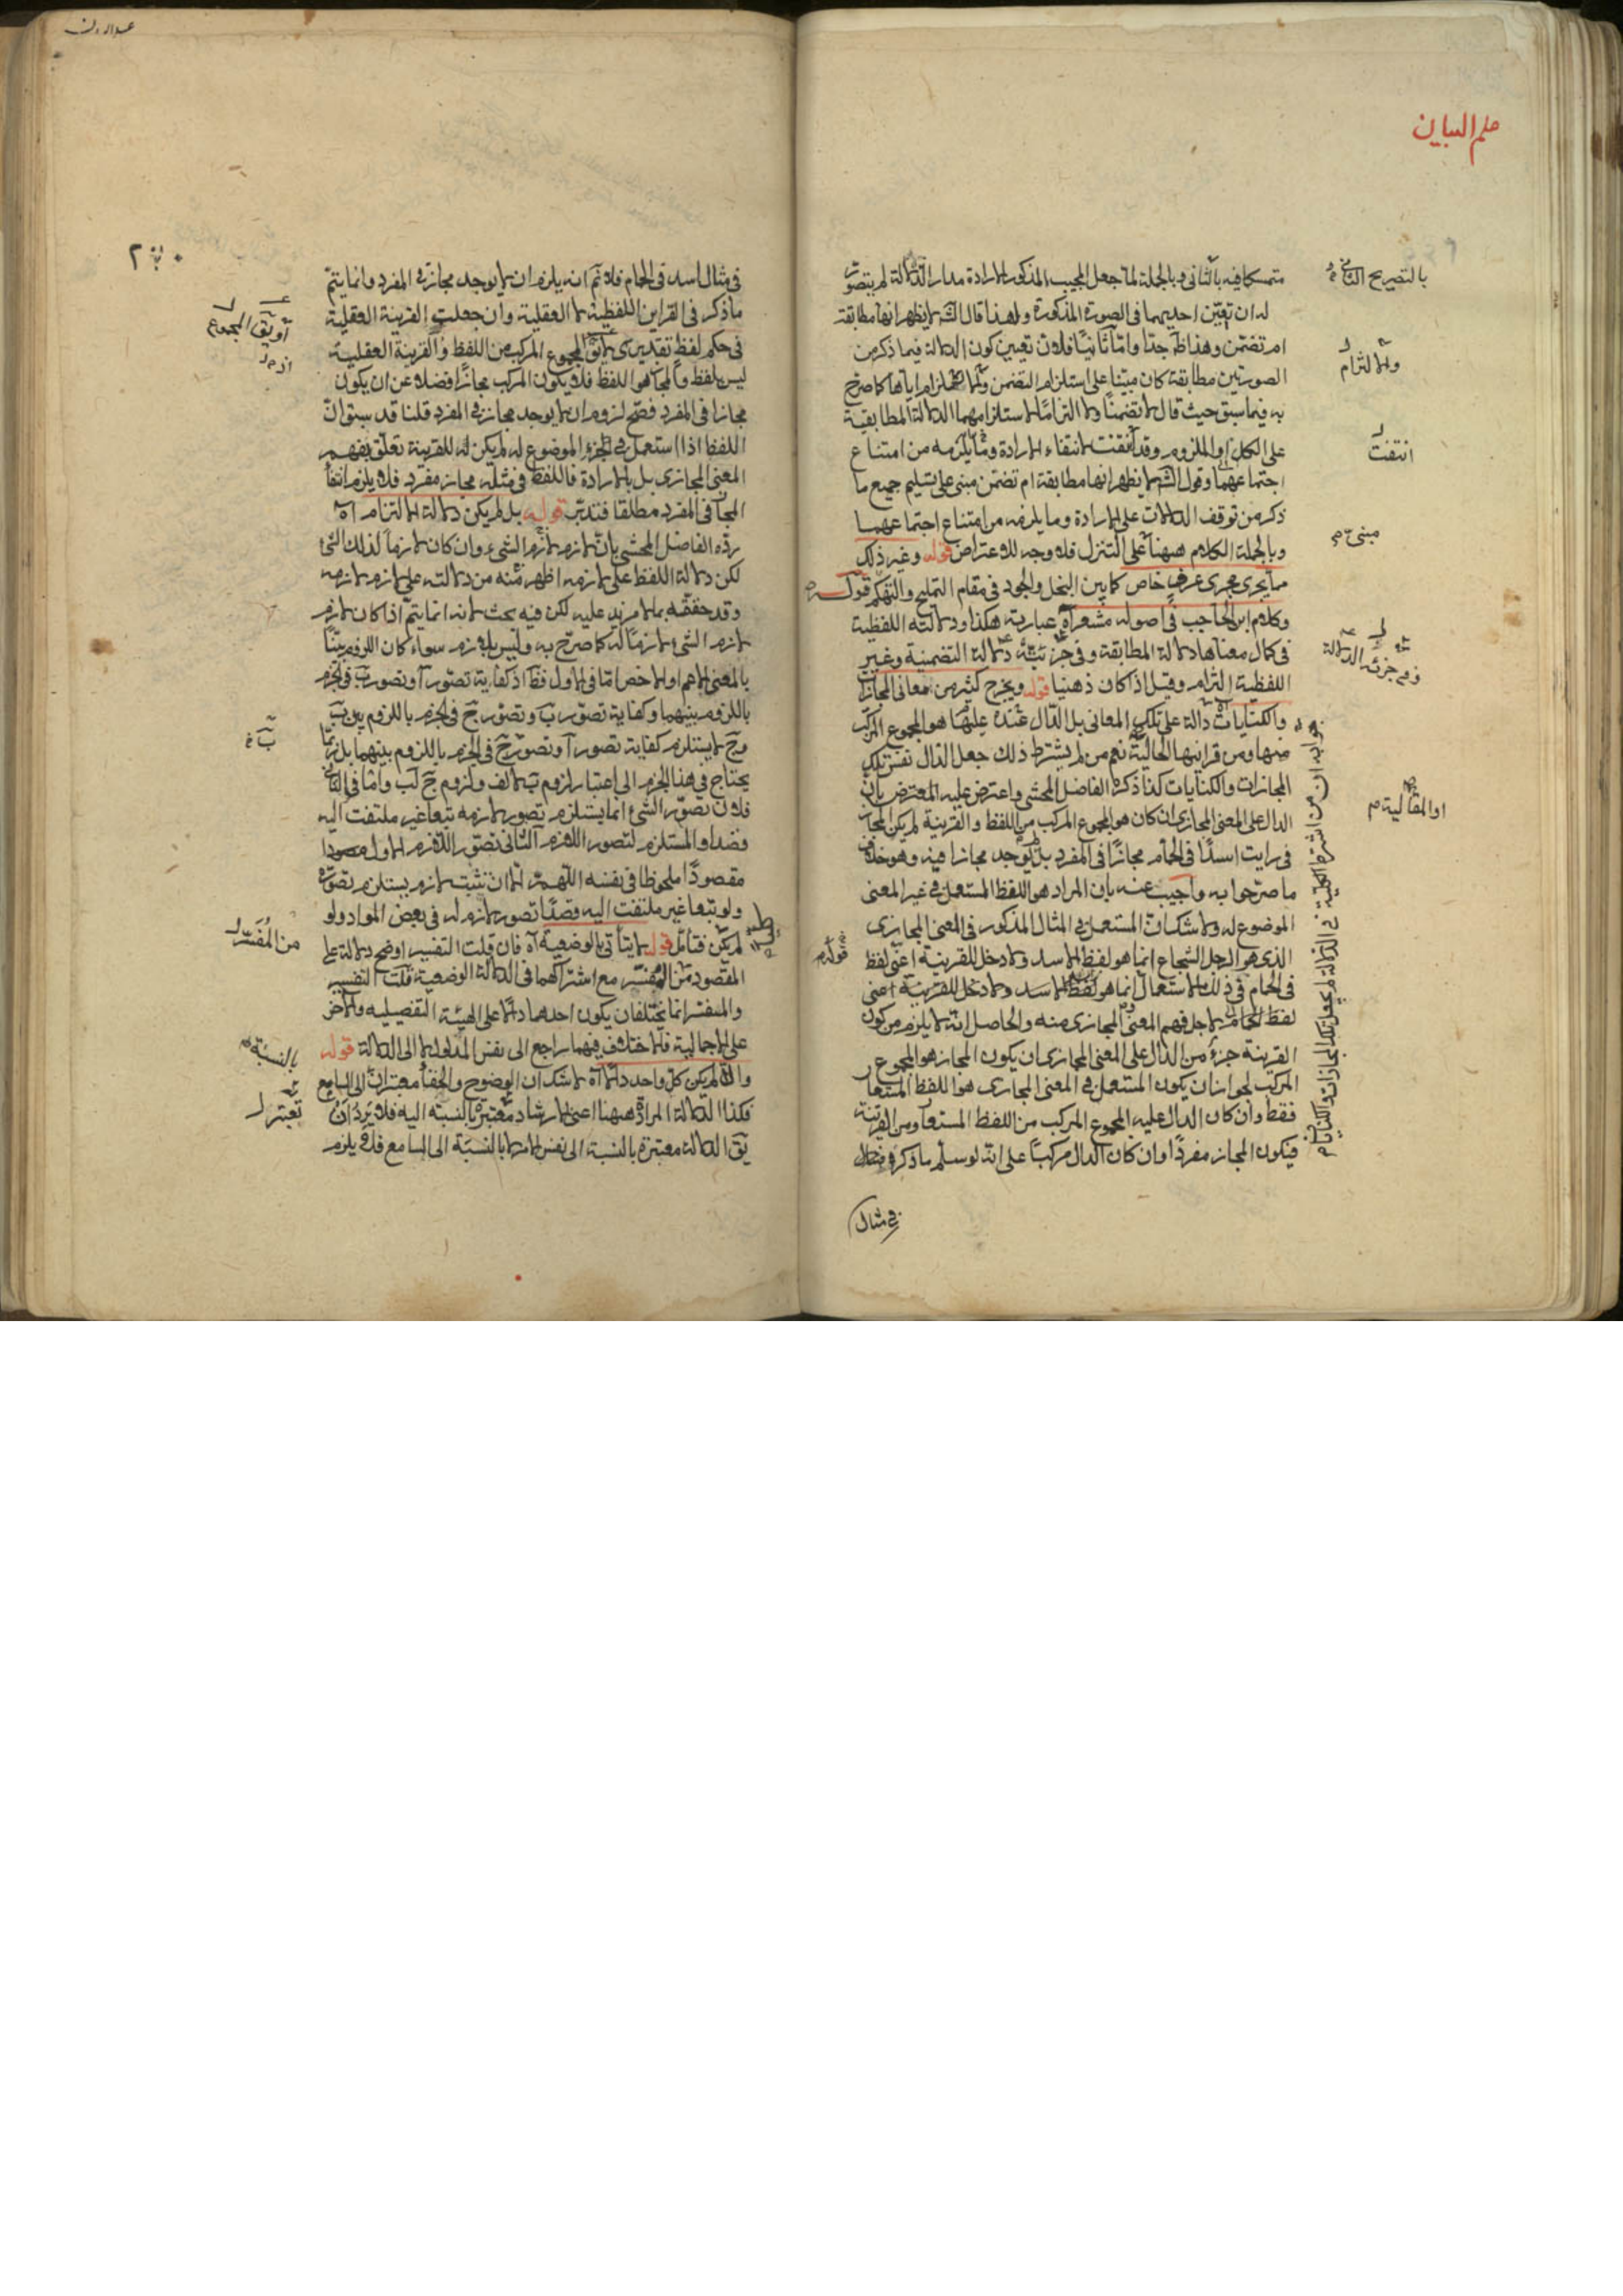 علم البيان
متمسكا فيه بالثانى وبالجملة لما جعل المجيب المذكور الارادة مدار الدلالة لم يتصور
له ان تعين احديهما فى الصورة المذكورة ولهذا قال الش لا يظهر انها مطابقة
ام تضمن وهذا ظ جدا واما ثانيا فلان تعيين كون الدلالة فيما ذكر من
الصورتين مطابقة كان مبتنا على استلزام التضمن والالتزام اياها كما صرح
به فيما سبق حيث قال لا تضمنا ولا التزاما لاستلزامهما الدلالة المطابقية
على الكل او الملزوم وقد انتفت لانتفاء الارادة وما يلزمه من امتناع
اجتماعهما وقول الش لا يظهر انها مطابقة ام تضمن مبنى على تسليم جميع ما
ذكر من توقف الدلالات على الارادة وما يلزمه من امتناع اجتماعهما
وبالجملة الكلام ههنا على التنزل فلا وجه للاعتراض قوله وغير ذلك
مما يجرى مجرى عرف خاص كما بين البخل والجود فى مقام التمليح والتهكم قوله
وكلام ابن الحاجب فى اصوله مشعر آه عبارته هكذا ودلالته اللفظية
فى كمال معناها دلالة المطابقة وفى جزئه دلالة التضمنية وغير
اللفظية التزام وقيل اذا كان ذهنيا قوله ويخرج كثير من معانى المجازات
والكنايات دالة على تلك المعانى بل الدال عنده عليها هو المجموع المركب
منها ومن قراينها الحالية نعم من لم يشترط ذلك جعل الدال نفس تلك
المجازات والكنايات كذا ذكره الفاضل المحشى واعترض عليه المعترض بان
الدال على المعنى المجازى ان كان هو المجموع المركب من اللفظ والقرينة لم يكن المجاز
فى رايت اسدا فى الحمام مجازا فى المفرد بل لا يوجد مجازا فيه وهو خلاف
ما صرحوا به واجيب عنه بان المراد هو اللفظ المستعمل فى غير المعنى
الموضوع له ولا شك ان المستعمل فى المثال المذكور فى المعنى المجازى
الذى هو الرجل الشجاع انما هو لفظ الاسد ولا دخل للقرينة اعنى لفظ
فى الحمام فى ذلك الاستعمال انما هو لفظ الاسد ولا دخل للقرينة اعنى
لفظ الحمام لاجل فهم المعنى المجازى منه والحاصل انه لا يلزم من كون
القرينة جزء من الدال على المعنى المجازى ان يكون المجاز هو المجموع
المركب لجواز ان يكون المستعمل فى المعنى المجازى هو اللفظ المستعار
فقط وان كان الدال عليه المجموع المركب من اللفظ المستعار ومن القرينة
فيكون المجاز مفردا وان كان الدال مركبا على انه لو سلم ما ذكره
فى مثال
بالتصريح الثانى
ولا التزام
انتفت
مبنى
وفى جزئه الدلالة
او المقالية
فى مثال اسد فى الحمام فلا نم انه يلزم ان لا يوجد مجاز فى المفرد وانما يتم
ما ذكر فى القراين اللفظية لا العقلية وان جعلت القرينة العقلية
فى حكم لفظ تقديرى المجموع المركب من اللفظ والقرينة العقلية
ليس بلفظ والمجاز هو اللفظ فلا يكون المركب مجازا فضلا عن ان يكون
مجازا فى المفرد فصح لزوم ان لا يوجد مجاز فى المفرد قلنا قد سبق ان
اللفظ اذا استعمل فى الجزء الموضوع له لم يكن له للقرينة تعلق بفهم
المعنى المجازى بل بالارادة فاللفظ فى مثله مجاز مفرد فلا يلزم انتفا
المجاز فى المفرد مطلقا فتدبر قوله بل لم يكن دلالة الالتزام آه
رده الفاضل المحشى بان لازم لازم الشىء وان كان لازما لذلك الشىء
لكن دلالة اللفظ على لازمه اظهر منه من دلالته على لازم لازمه
وقد حققه بما لا مزيد عليه لكن فيه بحث لانه انما يتم اذا كان لازم
لازم الشىء لازما له كما صرح به وليس بلازم سواء كان اللزوم بينا
بالمعنى الاعم او الاخص اما فى الاول فظ اذ كفاية تصور آ وتصور ب فى الجزم
باللزوم بينهما وكفاية تصور ب وتصور ج فى الجزم باللزوم بين ب
وج لا يستلزم كفاية تصور آ وتصور ج فى الجزم باللزوم بينهما بل ربما
يحتاج فى هذا الجزم الى اعتبار لزوم ب لالف ولزوم ج لب واما فى الثانى
فلان تصور الشىء انما يستلزم تصور لازمه تبعا غير ملتفت اليه
قصدا والمستلزم لتصور اللازم الثانى تصور اللازم الاول
مقصودا ملحوظا فى نفسه اللهم الا ان تثبت لازم يستلزم تصوره
ولو تبعا غير ملتفت اليه قصدا تصور لازم له فى بعض المواد ولو
لم يكن فتامل قوله لا يتأتى بالوضعية آه فان قلت التفسير اوضح دلالة على
المقصود من المفسر مع اشتراكهما فى الدلالة الوضعية قلت التفسير
والمفسر انما يختلفان بكون احدهما دالا على الهيئة التفصيليه والاخر
على الاجمالية فالاختلاف فيهما راجع الى نفس المدلول لا الى الدلالة قوله
والا لم يكن كل واحد دالا آه لا شك ان الوضوح والخفأ معتبران الى السامع
فكذا الدلالة المرادة ههنا اعنى الارشاد معتبرة بالنسبة اليه فلا يرد ان
يق الدلالة معتبرة بالنسبة الى نفس الامر لا بالنسبة الى السامع فلا يلزم
او يق المجموع
من المفسر
بالنسبة
تعتبر